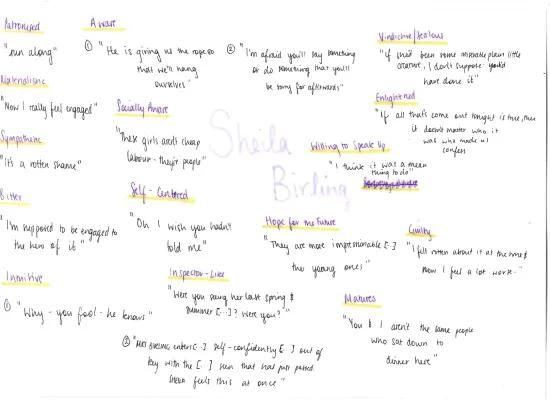 Patronised
"run along"
Materialistic
"Now I really feel engaged"
Sympathetic
"It's a rotten shame"
Bitter
"I'm supposed to be engaged to
the hero of it"
Intuitive
① "Why - you fool - he knows"
Aware
① "He is giving us the rope so
that we'll hang
ourselves"
② "I'm afraid you'll say something
or do something that you'll
be sorry for afterwards"
Socially Aware
"These girls aren't cheap
labour - they're people"
Self-Centred
"Oh I wish you hadn't
told me"
Inspector-Like
"Were you seeing her last spring &
summer [...]? Were you?"
② "MRS BIRLING enters [..] self-confidently [..] out of
key with the [..] scene that has just passed
SHEILA feels this at once"
Sheila
Birling
Vindictive/Jealous
"If she'd been some miserable plain little
creature, I don't suppose
have done it"
Enlightened
"If all that's come out tonight is true, then
it doesn't matter who it
was who made us
confess
Willing to Speak Up
"I think it was a mean
thing to do"
Hope for the Future
"They are more impressionable [..]
the young ones"
Guilty
"I felt rotten about it at the time &
now I feel a lot worse."
Matures
"You & I aren't the same people
who sat down to
dinner here"